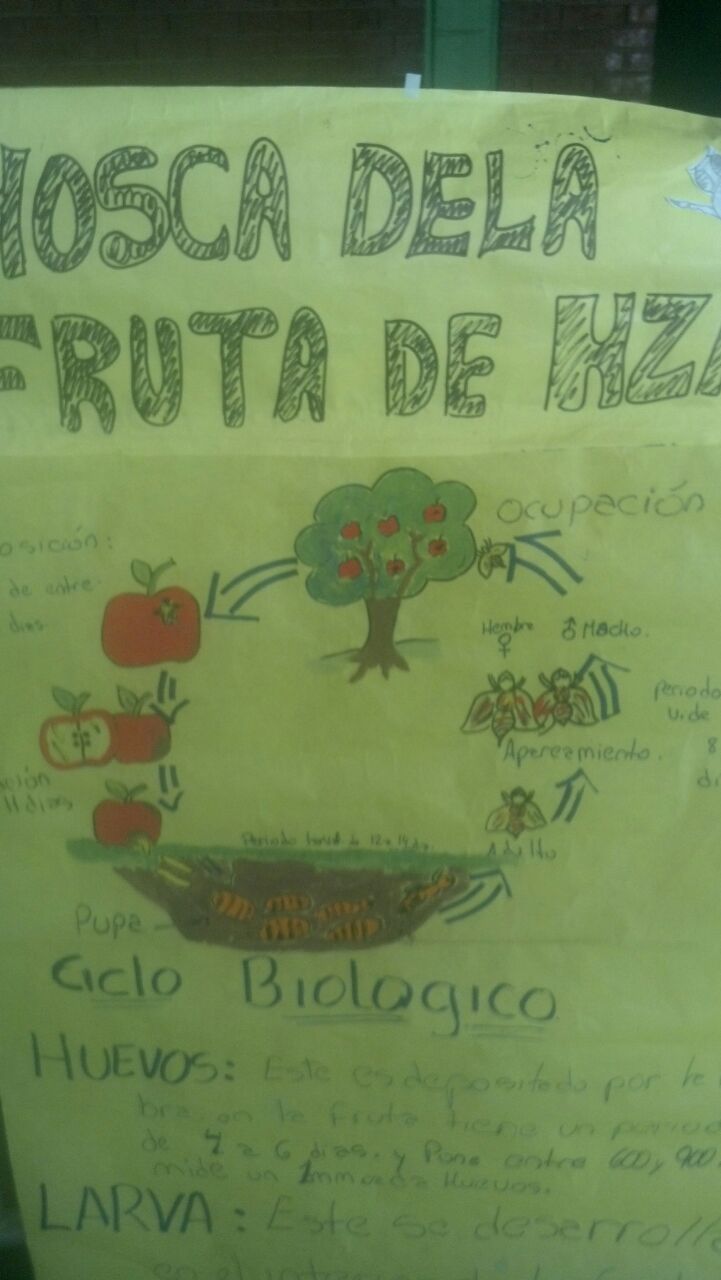 MOSCA DE LA
FRUTA DE MZA
OCUPACIÓN
osición:
de entre
dias
Hembra
♀
♂ Macho.
Periodo
Apareamiento.
8
di
ación
11 dias
Periodo larval de 12 a 14 dias.
Adulto
Pupa
Ciclo Biologico
HUEVOS: Este es depositado por le
bra, en la fruta tiene un periodo
de 4 a 6 dias. y Pone entre 600 y 900.
mide un 1mm cada Huevos.
LARVA: Este se desarrolla
en el